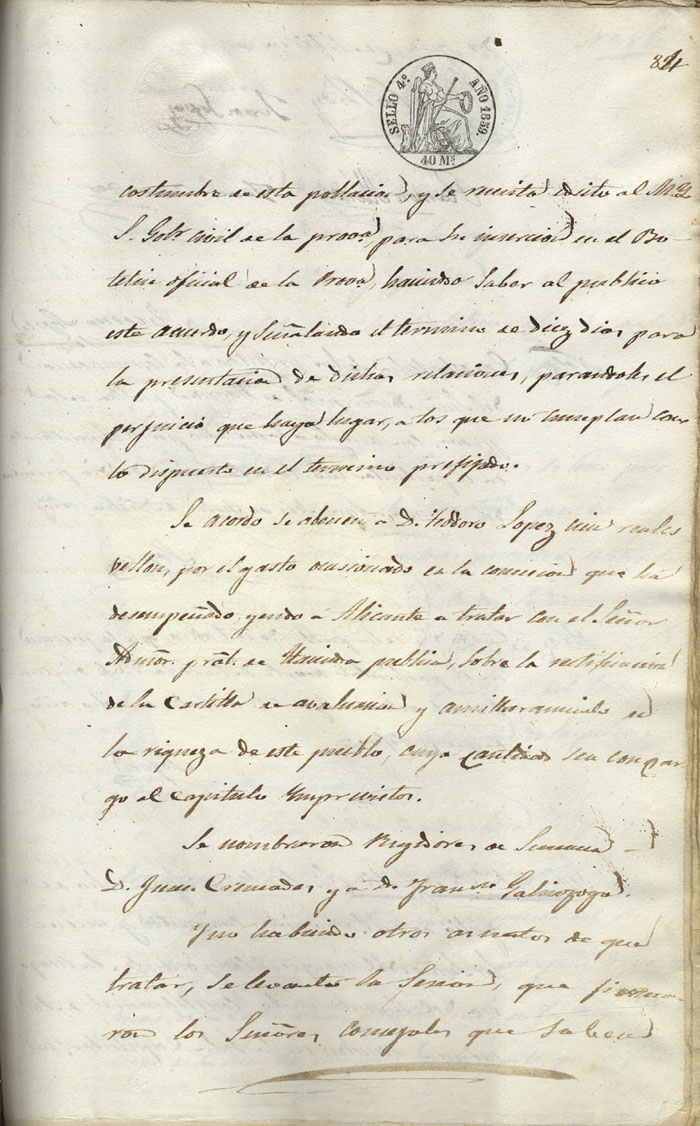 84
SELLO 4º. AÑO 1859.
40 Ms.
costumbre de esta poblacion, y se remita edicto al M. Y.
S. Gobr. civil de la prova, para su insercion en el Bo-
letin oficial de la Prova, haciendo saber al publico
este acuerdo, y señalando el termino de diez dias para
la presentacion de dichas relaciones, parandoles el
perjuicio que haya lugar, a los que no cumplan con
lo dispuesto en el termino prefijado.
Se acordo se abonen a D. Teodoro Lopez cien reales
vellon, por el gasto ocasionado en la comision que ha
desempeñado, yendo a Alicante a tratar con el Señor
Admor. pral. de Hacienda publica, sobre la rectificacion
de la Cartilla de evaluacion y amillaramiento de
la riqueza de este pueblo, cuya cantidad sea con car
go al capitulo Imprevistos.
Se nombraron Regidores de Semana
D. Juan Cremades y a D. Franco Galinzoga.
Y no habiendo otros asuntos de que
tratar, se levanto la Sesion, que firma-
ron los Señores concejales que saben